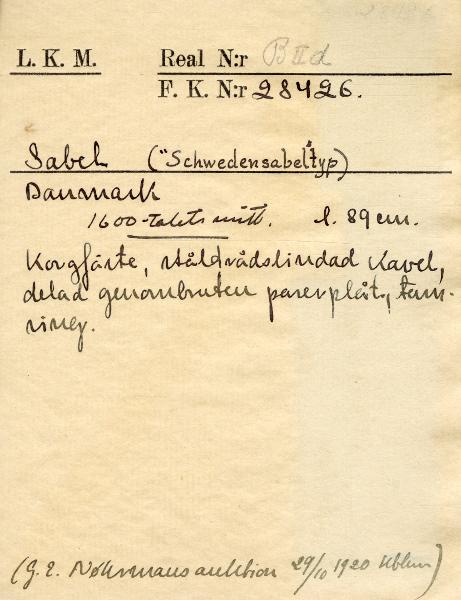 L. K. M. Real N:r B II d
F. K. N:r 28426.
Sabel ("Schwedensabel"typ)
Danmark
1600-talets mitt. l. 89 cm.
Korgfäste, ståltrådslindad kavel,
delad genombruten parerplåt, tum-
ring.
(G. E. Nohrmans auktion 29/10 1920 Kbhvn)